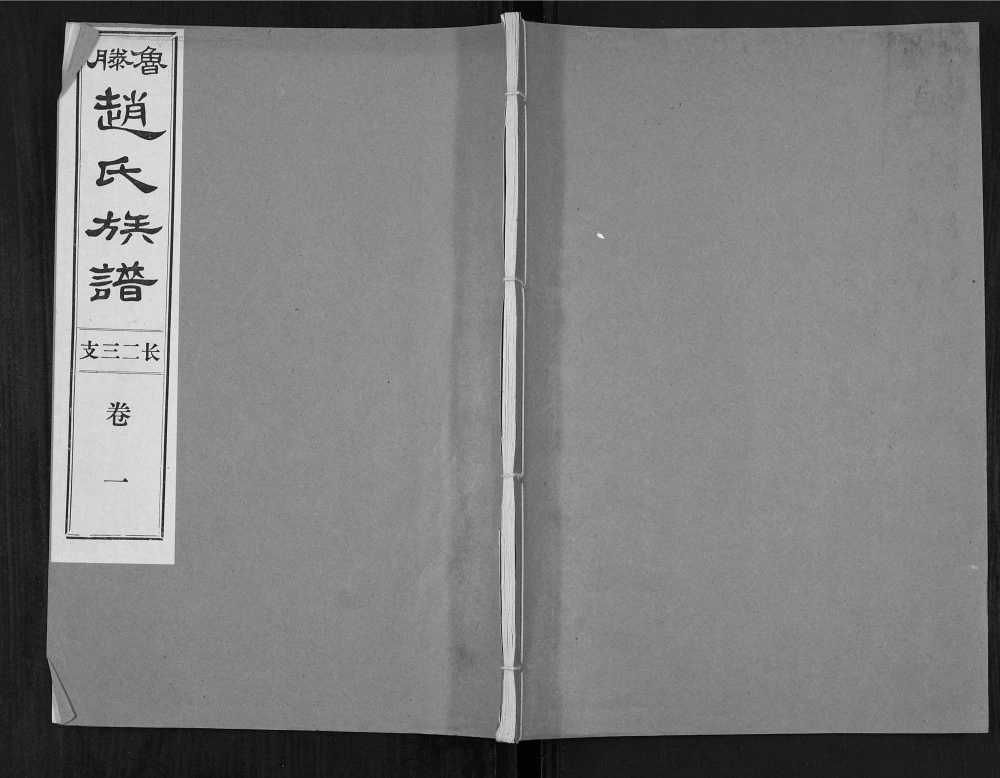 魯滕
趙氏族譜
长二三支
卷一